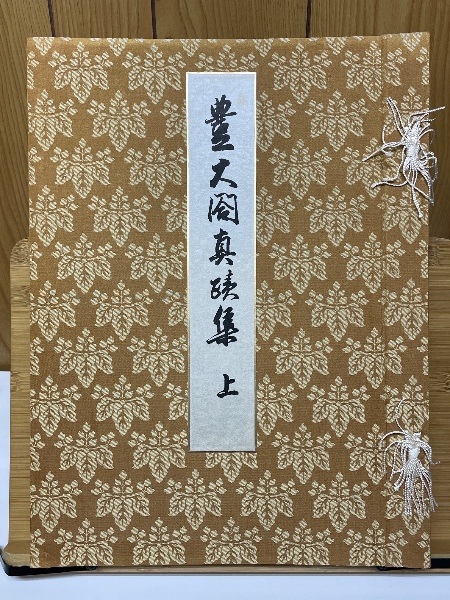 豊大閤真蹟集 上